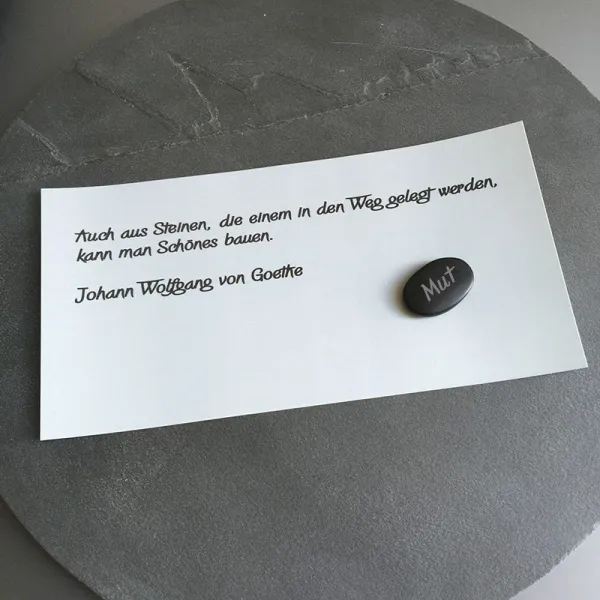 Auch aus Steinen, die einem in den Weg gelegt werden,
kann man Schönes bauen.
Johann Wolfgang von Goethe
Mut